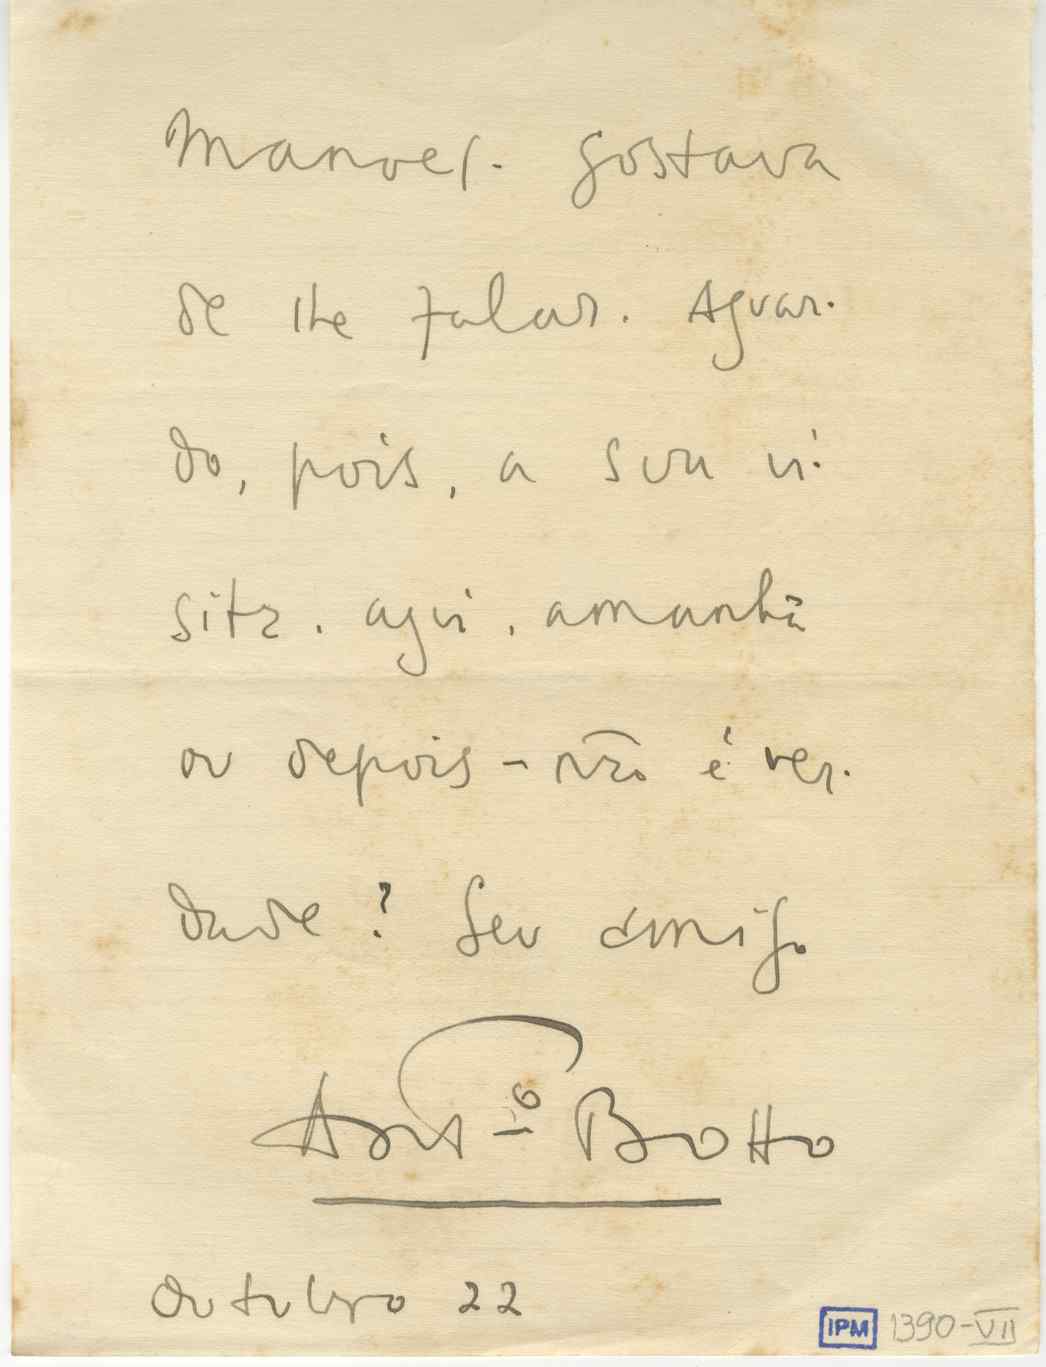 Manoel. Gostava
de lhe falar. Aguar-
do, pois, a sua vi-
sita. aqui, amanhã
ou depois - não é ver-
dade? Seu amigo
Antº Botto
Outubro 22
IPM 1390-VII